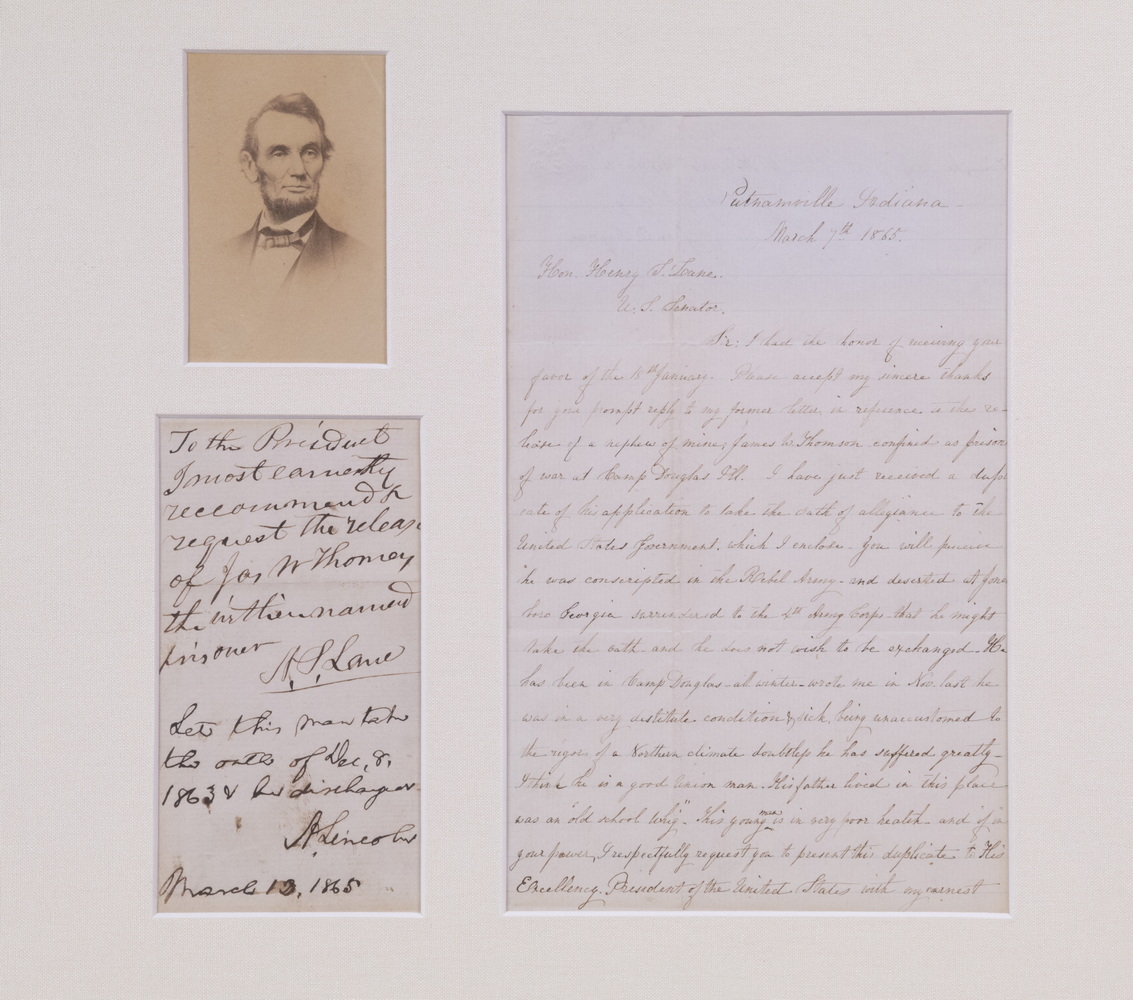 To the President
I most earnestly
recommend &
request the releas
of Jas W Thomson
the within named
prisoner
H. S. Lane
Let this man take
the oath of Dec. 8.
1863 & be discharged
A. Lincoln
March 13, 1865
Putnamville Indiana
March 7th 1865.
Hon. Henry S. Lane.
U. S. Senator.
Sir: I had the honor of receiving your
favor of the 18th January. Please accept my sincere thanks
for your prompt reply to my former letter in reference to the re-
lease of a nephew of mine, James W. Thomson confined as prison
of war at Camp Douglas Ill. I have just received a dupli
cate of his application to take the oath of allegiance to the
United States Government. which I enclose. You will perceive
he was conscripted in the Rebel Army- and deserted at Jones
boro Georgia surrendered to the 4th Army Corps- that he might
take the oath- and he does not wish to be exchanged- He
has been in Camp Douglas- all winter- wrote me in Nov. last he
was in a very destitute condition & sick, being unaccustomed to
the rigor of a Northern climate doubtless he has suffered greatly-
I think he is a good Union man. His father lived in this place
was an "old school Whig". This young man is in very poor health- and if in
your power, I respectfully request you to present this duplicate to His
Excellency. President of the United States with my earnest